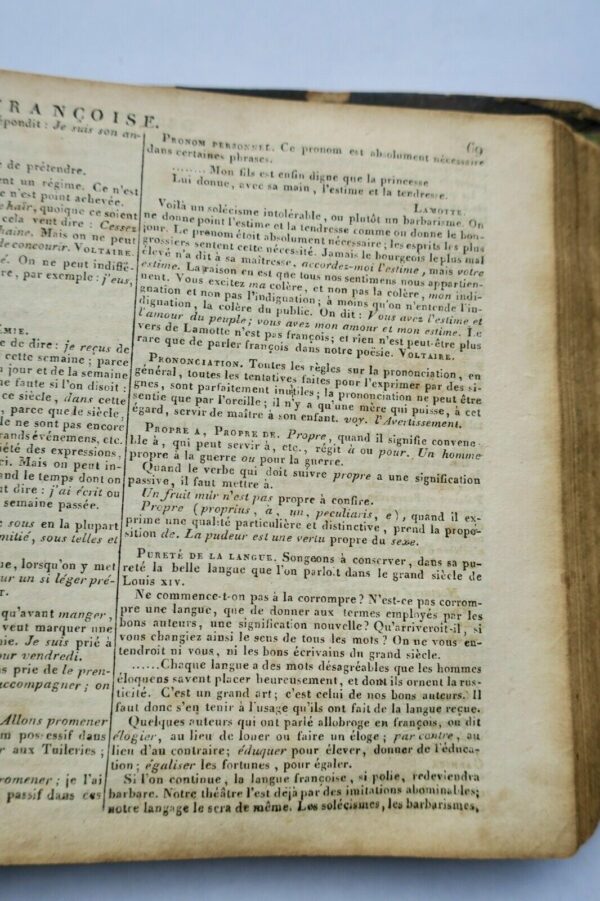 RANÇOISE.
69
épondit : Je suis son an-
de prétendre.
ent un régime. Ce n'est
e n'est point achevée.
haïr, quoique ce soient
cela veut dire : Cessez
haine. Mais on ne peut
de concourir. VOLTAIRE.
é. On ne peut indiffé-
re, par exemple : j'eus,
ÉMIE.
e de dire : je reçus de
cette semaine ; parce
u jour et de la semaine
ne faute si l'on disoit :
ce siècle, dans cette
, parce que le siècle,
le ne sont pas encore
rands événemens, etc.
iété des expressions,
ci. Mais on peut in-
and le temps dont on
t dire : j'ai écrit ou
semaine passée.
: sous en la plupart
milié, sous telles et
ne, lorsqu'on y met
ur un si léger pré-
r.
qu'avant manger,
veut marquer une
nie. Je suis prié à
our vendredi.
ns prie de le pren-
accompagner ; on
Allons promener
m possessif dans
r aux Tuileries ;
romener ; je l'ai
passif dans ces
PRONOM PERSONNEL. Ce pronom est absolument nécessaire
dans certaines phrases.
........ Mon fils est enfin digne que la princesse
Lui donne, avec sa main, l'estime et la tendresse.
LAMOTTE.
Voilà un solécisme intolérable, ou plutôt un barbarisme. On
ne donne point l'estime et la tendresse comme on donne le bon-
jour. Le pronom étoit absolument nécessaire ; les esprits les plus
grossiers sentent cette nécessité. Jamais le bourgeois le plus mal
élevé n'a dit à sa maîtresse, accordez-moi l'estime, mais votre
estime. La raison en est que tous nos sentimens nous appartien-
nent. Vous excitez ma colère, et non pas la colère, mon indi-
gnation et non pas l'indignation ; à moins qu'on n'entende l'in-
dignation, la colère du public. On dit : Vous avez l'estime et
l'amour du peuple ; vous avez mon amour et mon estime. Le
vers de Lamotte n'est pas françois; et rien n'est peut-être plus
rare que de parler françois dans notre poésie. VOLTAIRE.
PRONONCIATION. Toutes les règles sur la prononciation, en
général, toutes les tentatives faites pour l'exprimer par des si-
gnes, sont parfaitement inutiles ; la prononciation ne peut être
sentie que par l'oreille ; il n'y a qu'une mère qui puisse, à cet
égard, servir de maître à son enfant. voy. l'Avertissement.
PROPRE A, PROPRE DE. Propre, quand il signifie convena-
ble à, qui peut servir à, etc., régit à ou pour. Un homme
propre à la guerre ou pour la guerre.
Quand le verbe qui doit suivre propre a une signification
passive, il faut mettre à.
Un fruit mûr n'est pas propre à confire.
Propre (proprius, a, un, peculiaris, e), quand il ex-
prime une qualité particulière et distinctive, prend la propo-
sition de. La pudeur est une vertu propre du sexe.
PURETÉ DE LA LANGUE. Songeons à conserver, dans sa pu-
reté la belle langue que l'on parloit dans le grand siècle de
Louis XIV.
Ne commence-t-on pas à la corrompre ? N'est-ce pas corrom-
pre une langue, que de donner aux termes employés par les
bons auteurs, une signification nouvelle? Qu'arriveroit-il, si
vous changiez ainsi le sens de tous les mots ? On ne vous en-
tendroit ni vous, ni les bons écrivains du grand siècle.
......Chaque langue a des mots désagréables que les hommes
éloquens savent placer heureusement, et dont ils ornent la rus-
ticité. C'est un grand art ; c'est celui de nos bons auteurs. Il
faut donc s'en tenir à l'usage qu'ils ont fait de la langue reçue.
Quelques auteurs qui ont parlé allobroge en françois, ou dit
élogier, au lieu de louer ou faire un éloge ; par contre, au
lieu d'au contraire; éduquer pour élever, donner de l'éduca-
tion ; égaliser les fortunes, pour égaler.
Si l'on continue, la langue françoise, si polie, redeviendra
barbare. Notre théâtre l'est déjà par des imitations abominables;
notre langage le sera de même. Les solécismes, les barbarismes,